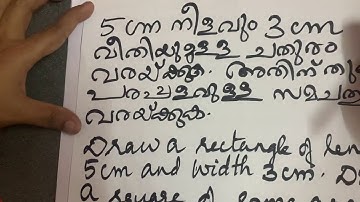 5 cm നീളവും 3 cm
വീതിയുമുള്ള ചതുരം
വരയ്ക്കുക. അതിന്
പരപ്പളവുള്ള
വരയ്ക്കുക.
Draw a rectangle of
5cm and width 3cm.
a square of same